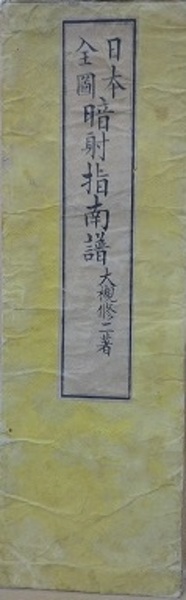 日本
全圖
暗射指南譜
大槻修二著